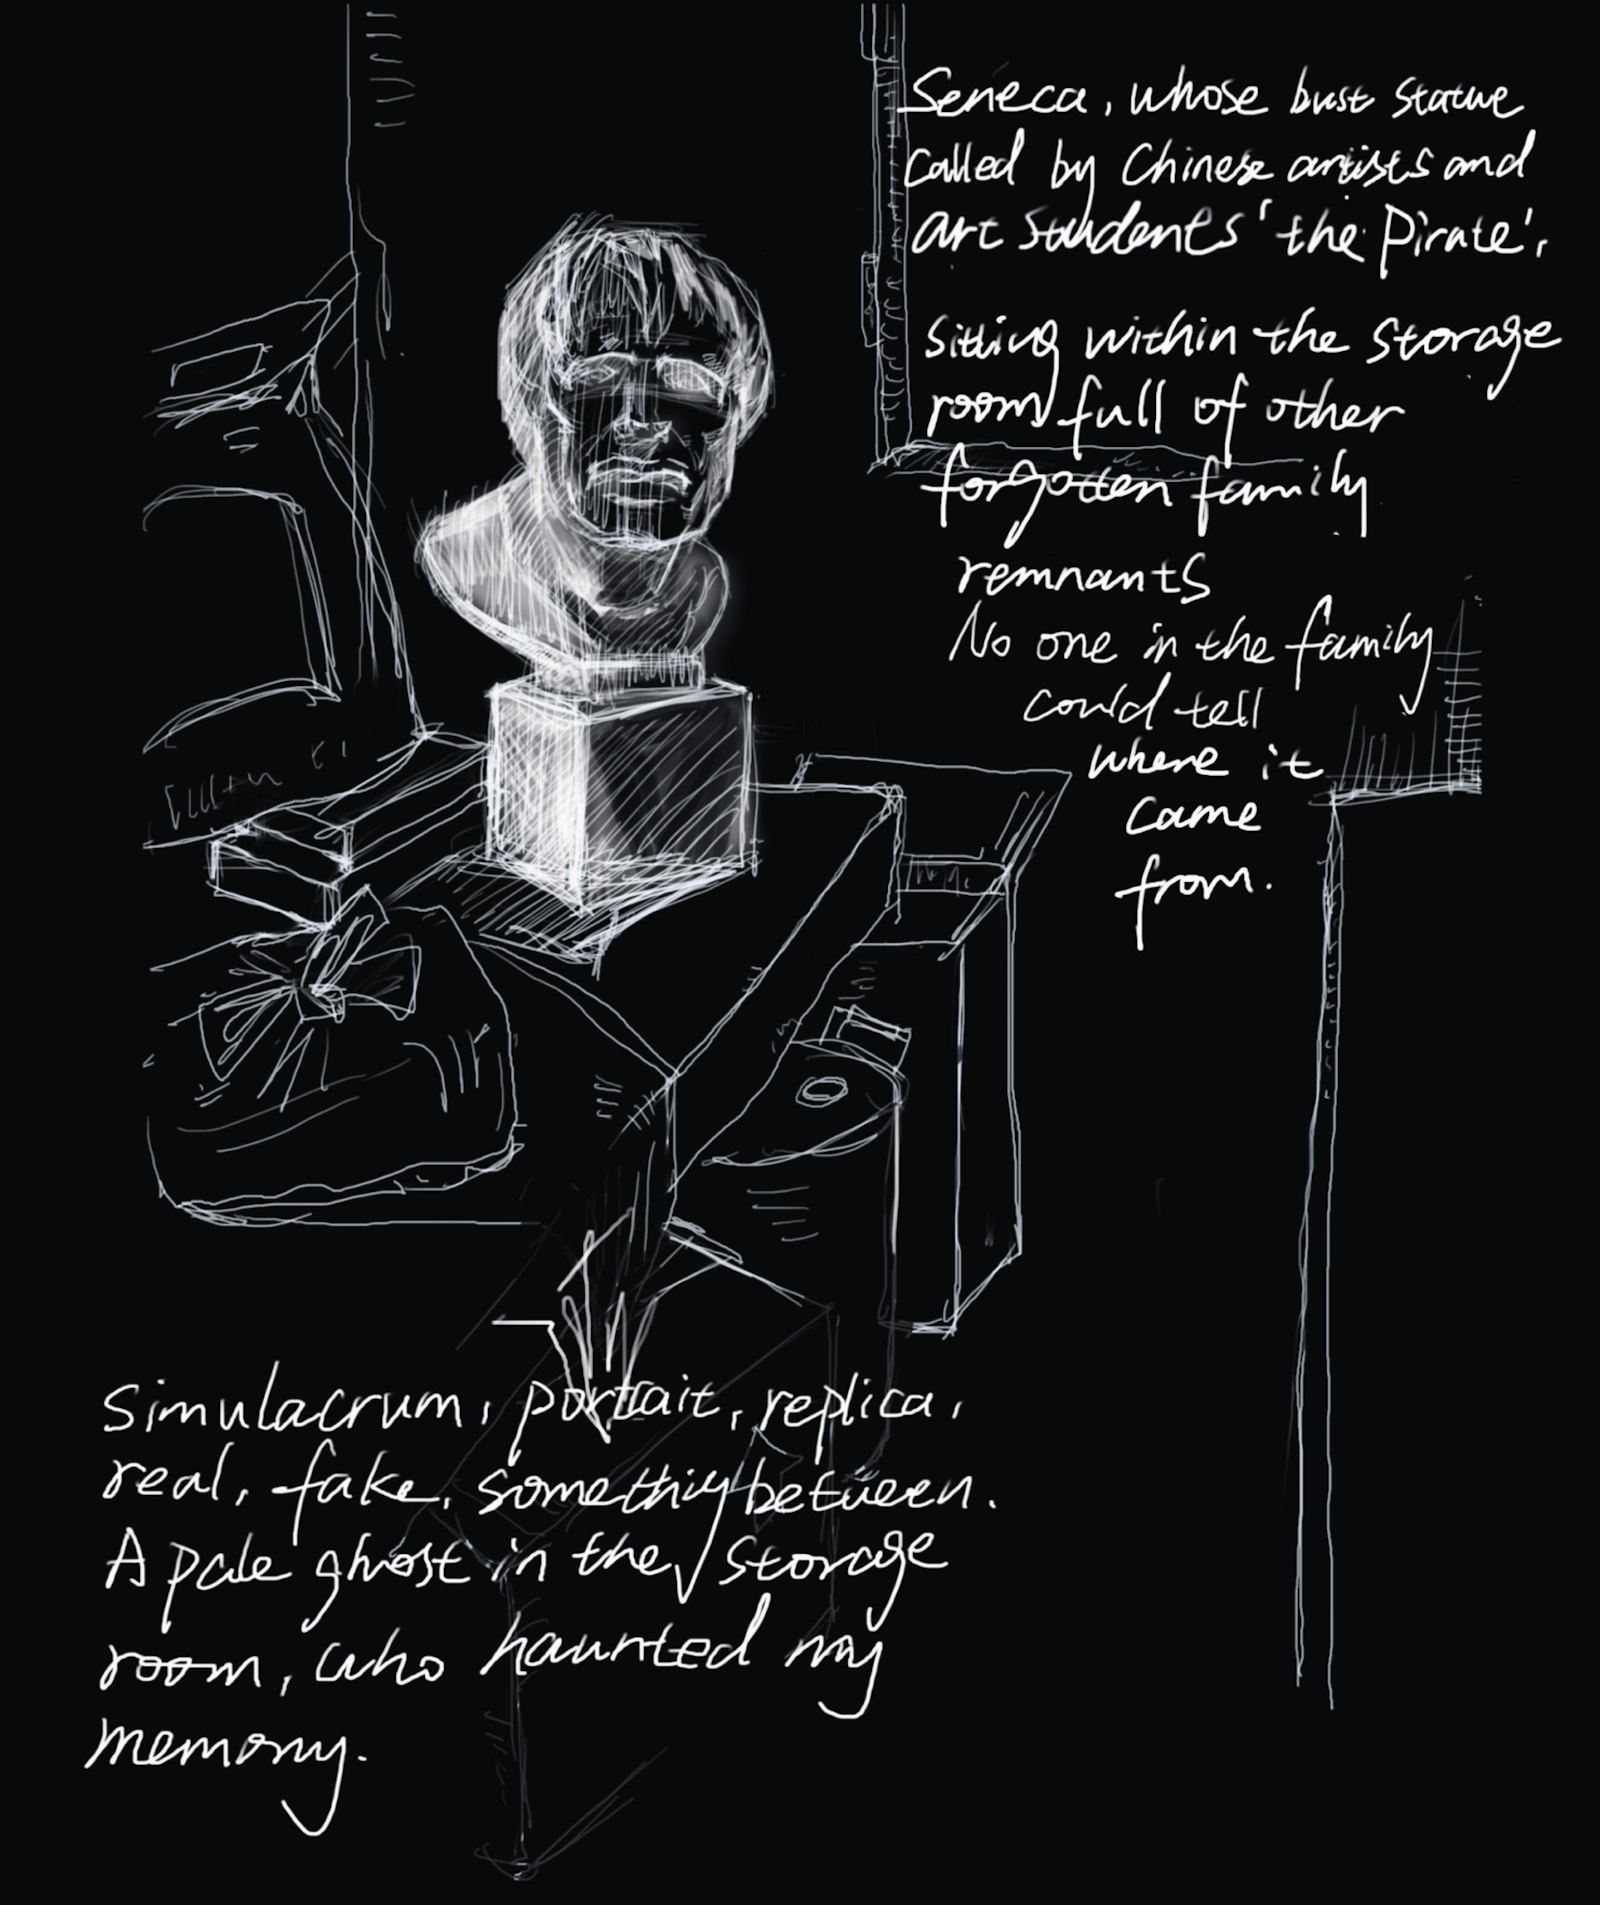 Seneca, whose bust statue
called by Chinese artists and
art students 'the Pirate',
sitting within the storage
room full of other
forgotten family
remnants
No one in the family
could tell
where it
came
from.
Simulacrum, portrait, replica,
real, fake, something between.
A pale ghost in the storage
room, who haunted my
memory.